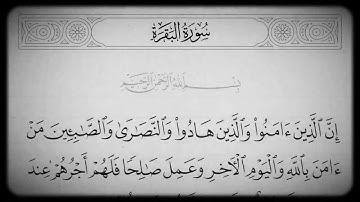 سُورَةُ البَقَرَةِ
بِسْمِ اللَّهِ الرَّحْمَٰنِ الرَّحِيمِ
إِنَّ ٱلَّذِينَ ءَامَنُوا۟ وَٱلَّذِينَ هَادُوا۟ وَٱلنَّصَـٰرَىٰ وَٱلصَّـٰبِـِٔينَ مَنْ
ءَامَنَ بِٱللَّهِ وَٱلْيَوْمِ ٱلْـَٔاخِرِ وَعَمِلَ صَـٰلِحًا فَلَهُمْ أَجْرُهُمْ عِندَ